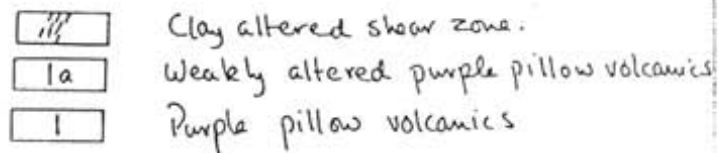 Clay altered shear zone.
1a Weakly altered purple pillow volcanics
1 Purple pillow volcanics